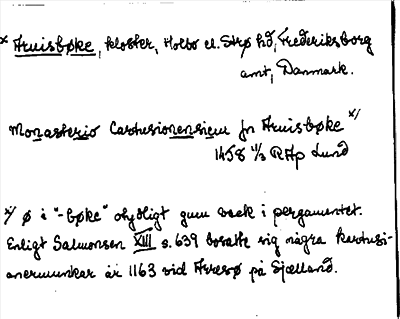 x Aruisbøke, kloster, Holbo el. Strø hd, Frederiksborg
amt, Danmark.
Monasterio Cartusiensium in Aruisbøke x/
1458 11/3 RAp Lund
x/ ø i "-bøke" otydligt gum veck i pergamentet.
Enligt Salmonsen XIII s. 639 bosatte sig några kartusi-
anermunkar år 1163 vid Arresø på Sjælland.